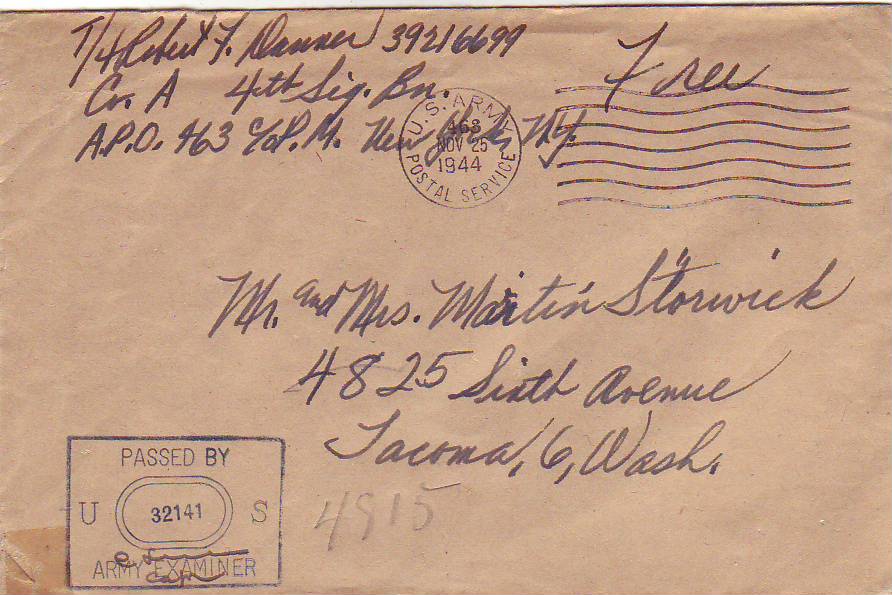 T/4 Robert F. Danner 39216699
Co. A 4th Sig. Bn.
A.P.O. 463 c/o P.M. New York, N.Y.
Free
U.S. ARMY
463
NOV 25
1944
POSTAL SERVICE
Mr. and Mrs. Martin Storwick
4825 Sixth Avenue
Tacoma, 6, Wash.
PASSED BY
U 32141 S
ARMY EXAMINER
Capt
4915